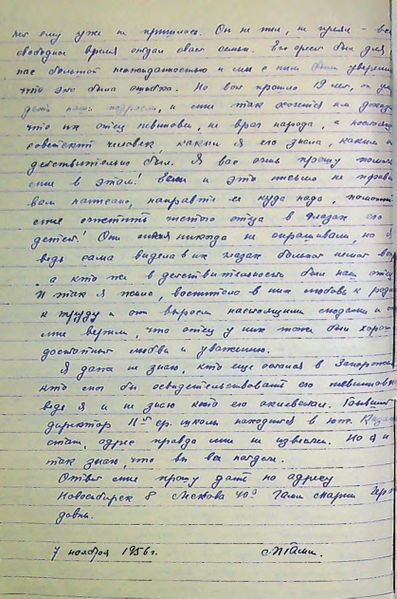 ему уже не пришлось. Он не пил, не гулял - все
свободное время отдал своей семье. Его арест был для
нас большой неожиданностью и мы с ним были уверены
что это была ошибка. Но вот прошло 19 лет, он уже
дети наши и мне так хочется им доказать
что их отец невиновен, не враг народа, а настоящий
советский человек, каким я его знала, каким он
действительно был. Я вас очень прошу помогите
мне в этом! Если и это письмо не
вам написано, направьте его куда надо, помогите
мне очистить честного отца в глазах его
детей! Они меня никогда не спрашивали, но я
ведь сама видела в их глазах большой немой вопрос
а кто же в действительности был наш отец
И так я жила, воспитала в них любовь к родине
к труду и они выросли настоящими людьми и
мне верили, что отец у них тоже был хороший
достойный любви и уважения.
Я даже не знаю, кто еще остался в Запорожье
кто мог бы освидетельствовать его невиновность
ведь я и не знаю кто его оклеветал. Бывший
директор 11й ср. школы находится в юж.
адрес правда мне не известен. Но я и
так знаю, что вы все найдете.
Ответ мне прошу дать по адресу
Новосибирск 8 40
7 ноября 1956 г.